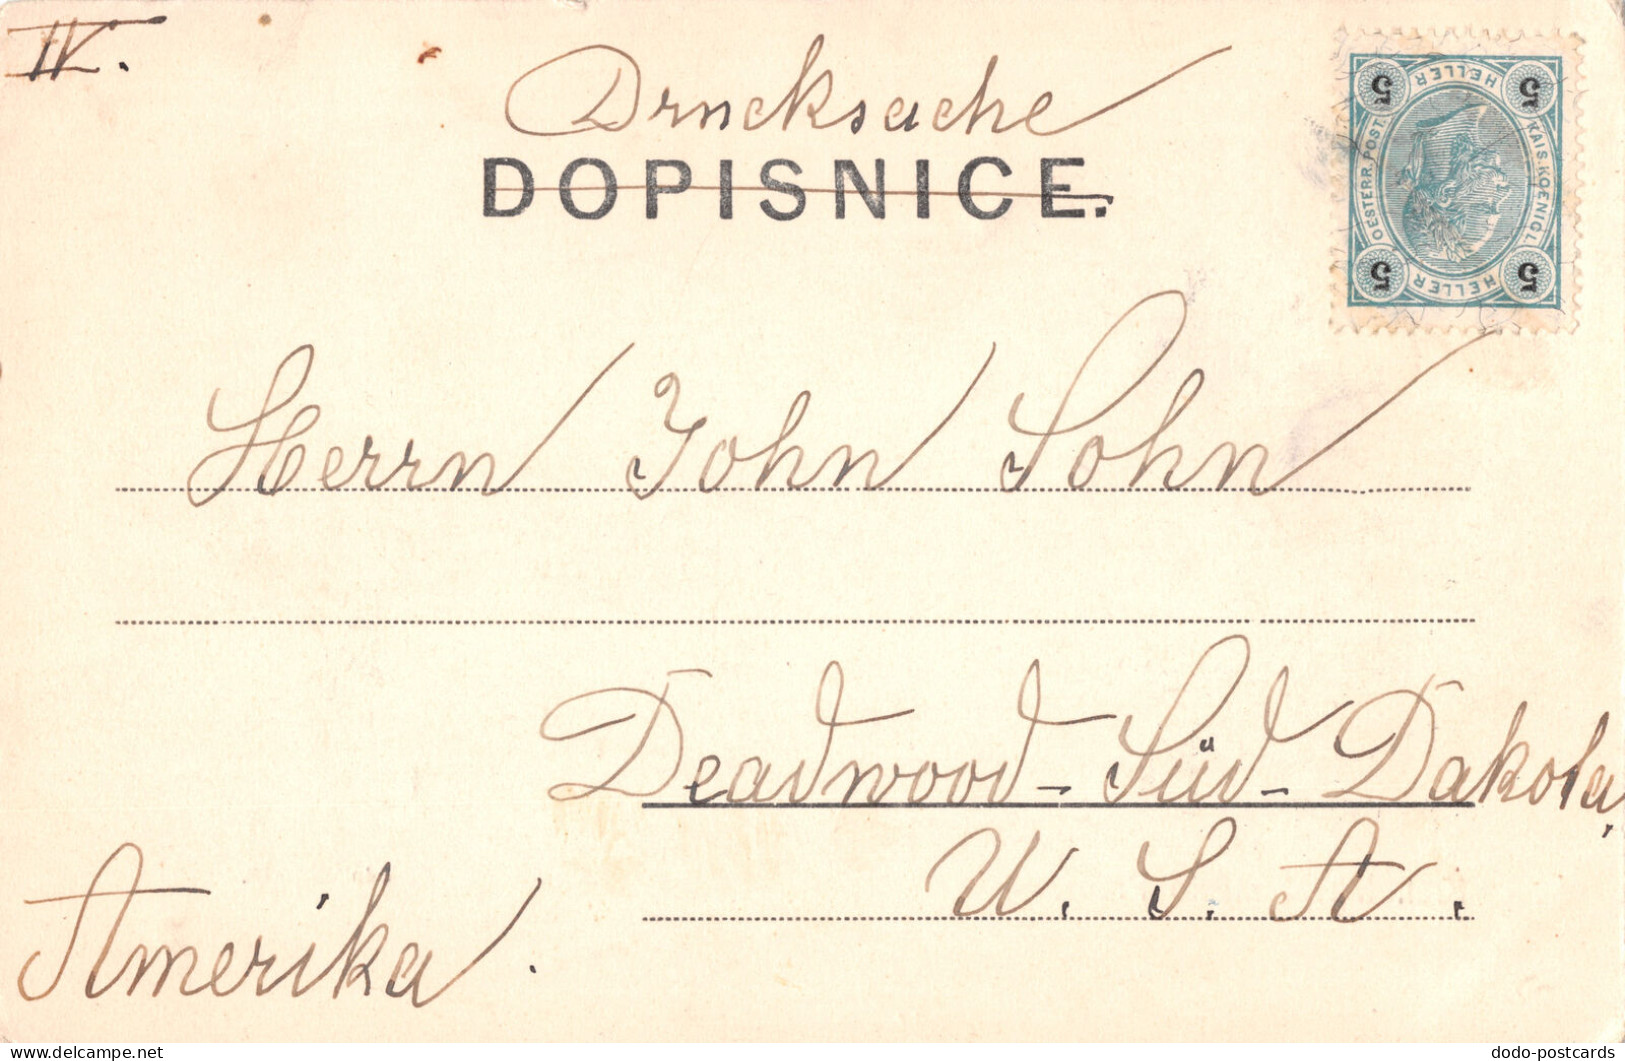 IV.
Drucksache
DOPISNICE.
5 HELLER 5
OESTERR. POST.
KAIS. KOENIGL.
5 HELLER 5
Herrn John Sohn
Deadwood - Süd - Dakota,
U. S. A.
Amerika.
delcampe.net
dodo-postcards